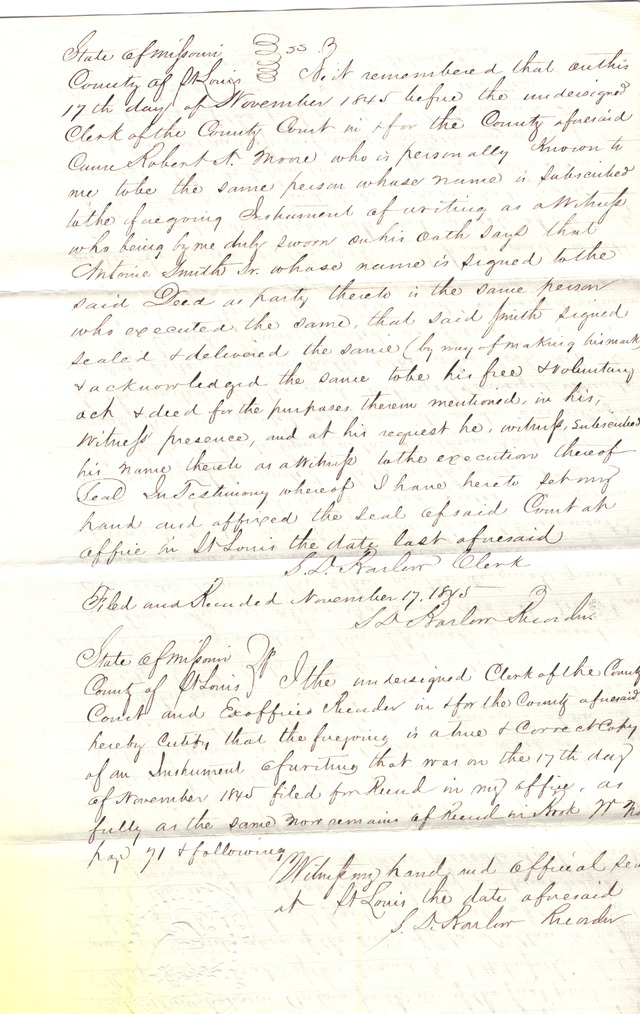 State of Missouri
County of St Louis } SS. Be it remembered that on this
17th day of November 1845 before the undersigned
Clerk of the County Court in & for the County aforesaid
Came Robert N. Moore who is personally Known to
me to be the same person whose name is Subscribed
to the foregoing Instrument of writing as a Witness
who being by me duly sworn on his oath says that
Antoine Smith Sr. whose name is signed to the
said Deed as party thereto is the same person
who executed the same, that said Smith signed
sealed & delivered the same (by way of making his mark
& acknowledged the same to be his free & voluntary
act & deed for the purposes therein mentioned, in his,
Witness presence, and at his request he, witness, subscribed
his name thereto as a Witness to the execution thereof
Seal In Testimony whereof I have hereto set my
hand and affixed the seal of said Court at
office in St Louis the date last aforesaid
S. D. Barlow Clerk
Filed and Recorded November 17, 1845
S D Barlow Recorder
State of Missouri
County of St Louis } I the undersigned Clerk of the County
Court and Exofficio Recorder in & for the County aforesaid
hereby Certify that the foregoing is a true & Correct Copy
of an Instrument of writing that was on the 17th day
of November 1845 filed for Record in my office, as
fully as the same now remains of Record in Book
page 71 & following
Witness my hand and official sea
at St Louis the date aforesaid
S. D. Barlow Recorder